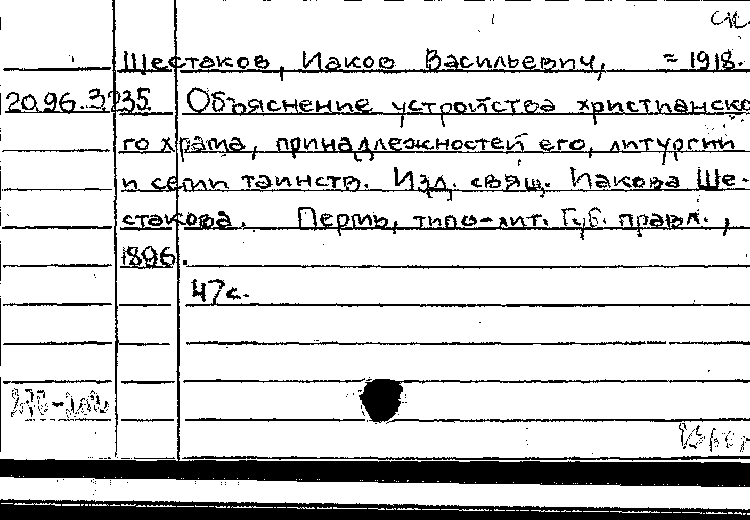 Шестаков, Иаков Васильевич, = 1918.
20.96.3235 Объяснение устройства христианско
го храма, принадлежностей его, литургии
и семи таинств. Изд. свящ. Иакова Ше-
стакова. Пермь, типо-лит. Губ. правл.,
1896.
47с.